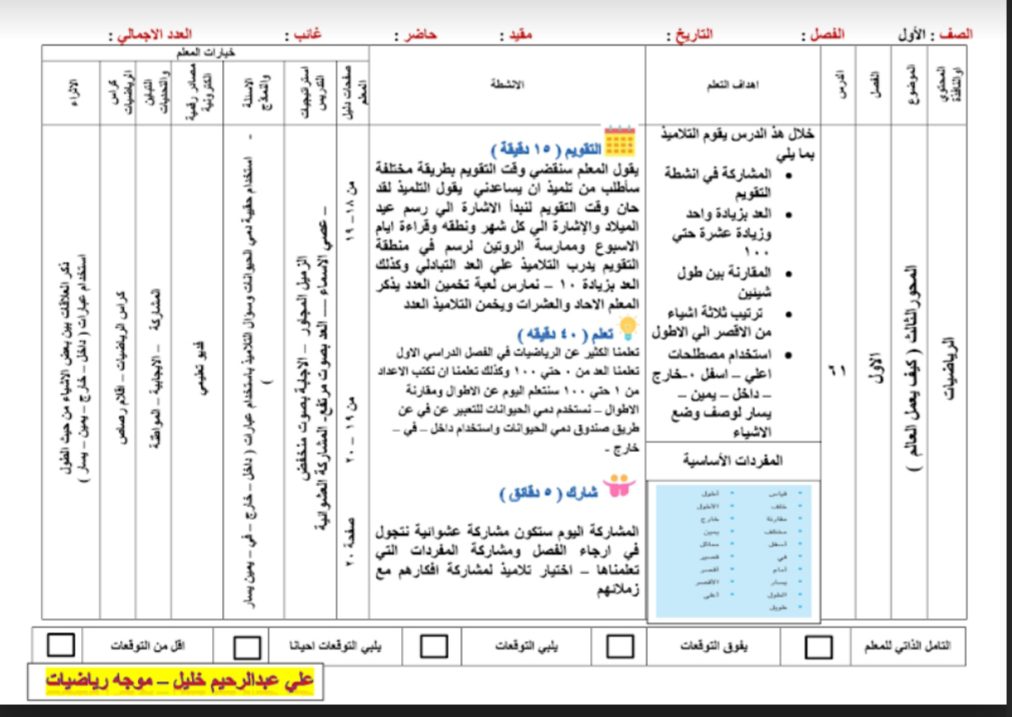 الصف : الأول الفصل : التاريخ : مقيد : حاضر : غائب : العدد الاجمالي :
المحتوي اوالنافذة
الموضوع
الفصل
الدرس
اهداف التعلم
الانشطة
خيارات المعلم
صفحات دليل المعلم
استراتيجيات التدريس
الاسئلة والنمذج
مصادر رقمية الكترونية
التباين والتحديات
كراس الرياضيات
الاثراء
الرياضيات
المحور الثالث ( كيف يعمل العالم )
الاول
٦١
خلال هذ الدرس يقوم التلاميذ
بما يلي
• المشاركة في انشطة
التقويم
• العد بزيادة واحد
وزيادة عشرة حتي
١٠٠
• المقارنة بين طول
شيئين
• ترتيب ثلاثة اشياء
من الاقصر الي الاطول
• استخدام مصطلحات
اعلي – اسفل -خارج
– داخل – يمين –
يسار لوصف وضع
الاشياء
المفردات الأساسية
• قياس • أطول
• خلف • الأطول
• مقارنة • خارج
• مختلف • يمين
• أسفل • مماثل
• في • قصير
• أمام • أقصر
• يسار • الأقصر
• الطول • أعلي
• طويل
التقويم ( ١٥ دقيقة )
يقول المعلم سنقضي وقت التقويم بطريقة مختلفة
سأطلب من تلميذ ان يساعدني يقول التلميذ لقد
حان وقت التقويم لنبدأ الاشارة الي رسم عيد
الميلاد والإشارة الي كل شهر ونطقه وقراءة ايام
الاسبوع وممارسة الروتين لرسم في منطقة
التقويم يدرب التلاميذ علي العد التبادلي وكذلك
العد بزيادة ١٠ – نمارس لعبة تخمين العدد يذكر
المعلم الاحاد والعشرات ويخمن التلاميذ العدد
تعلم ( ٤٠ دقيقه )
تعلمنا الكثير عن الرياضيات في الفصل الدراسي الاول
تعلمنا العد من ٠ حتي ١٠٠ وكذلك تعلمنا ان نكتب الاعداد
من ١ حتي ١٠٠ سنتعلم اليوم عن الاطوال ومقارنة
الاطوال – نستخدم دمي الحيوانات للتعبير عن في عن
طريق صندوق دمي الحيوانات واستخدام داخل – في –
خارج -
شارك ( ٥ دقائق )
المشاركة اليوم ستكون مشاركة عشوائية نتجول
في ارجاء الفصل ومشاركة المفردات التي
تعلمناها – اختيار تلاميذ لمشاركة افكارهم مع
زملائهم
من ١٨– ١٩
من ١٩ – ٢٠
صفحة ٢٠
– عصي الاسماء – العد بصوت مرتفع، المشاركة العشوائية
الزميل المجاور – الاجابة بصوت منخفض
- استخدام حقيبة دمي الحيوانات وسؤال التلاميذ باستخدام عبارات ( داخل – خارج – في – يمين يسار
)
فديو تعليمي
المشاركة – الايجابية – المواظنة
كراس الرياضيات – اقلام رصاص
ذكر العلاقات بين بعض الاشياء من حيث الطول
استخدام عبارات ( داخل – خارج – يمين – يسار )
التامل الذاتي للمعلم يفوق التوقعات يلبي التوقعات يلبي التوقعات احيانا اقل من التوقعات
علي عبدالرحيم خليل – موجه رياضيات